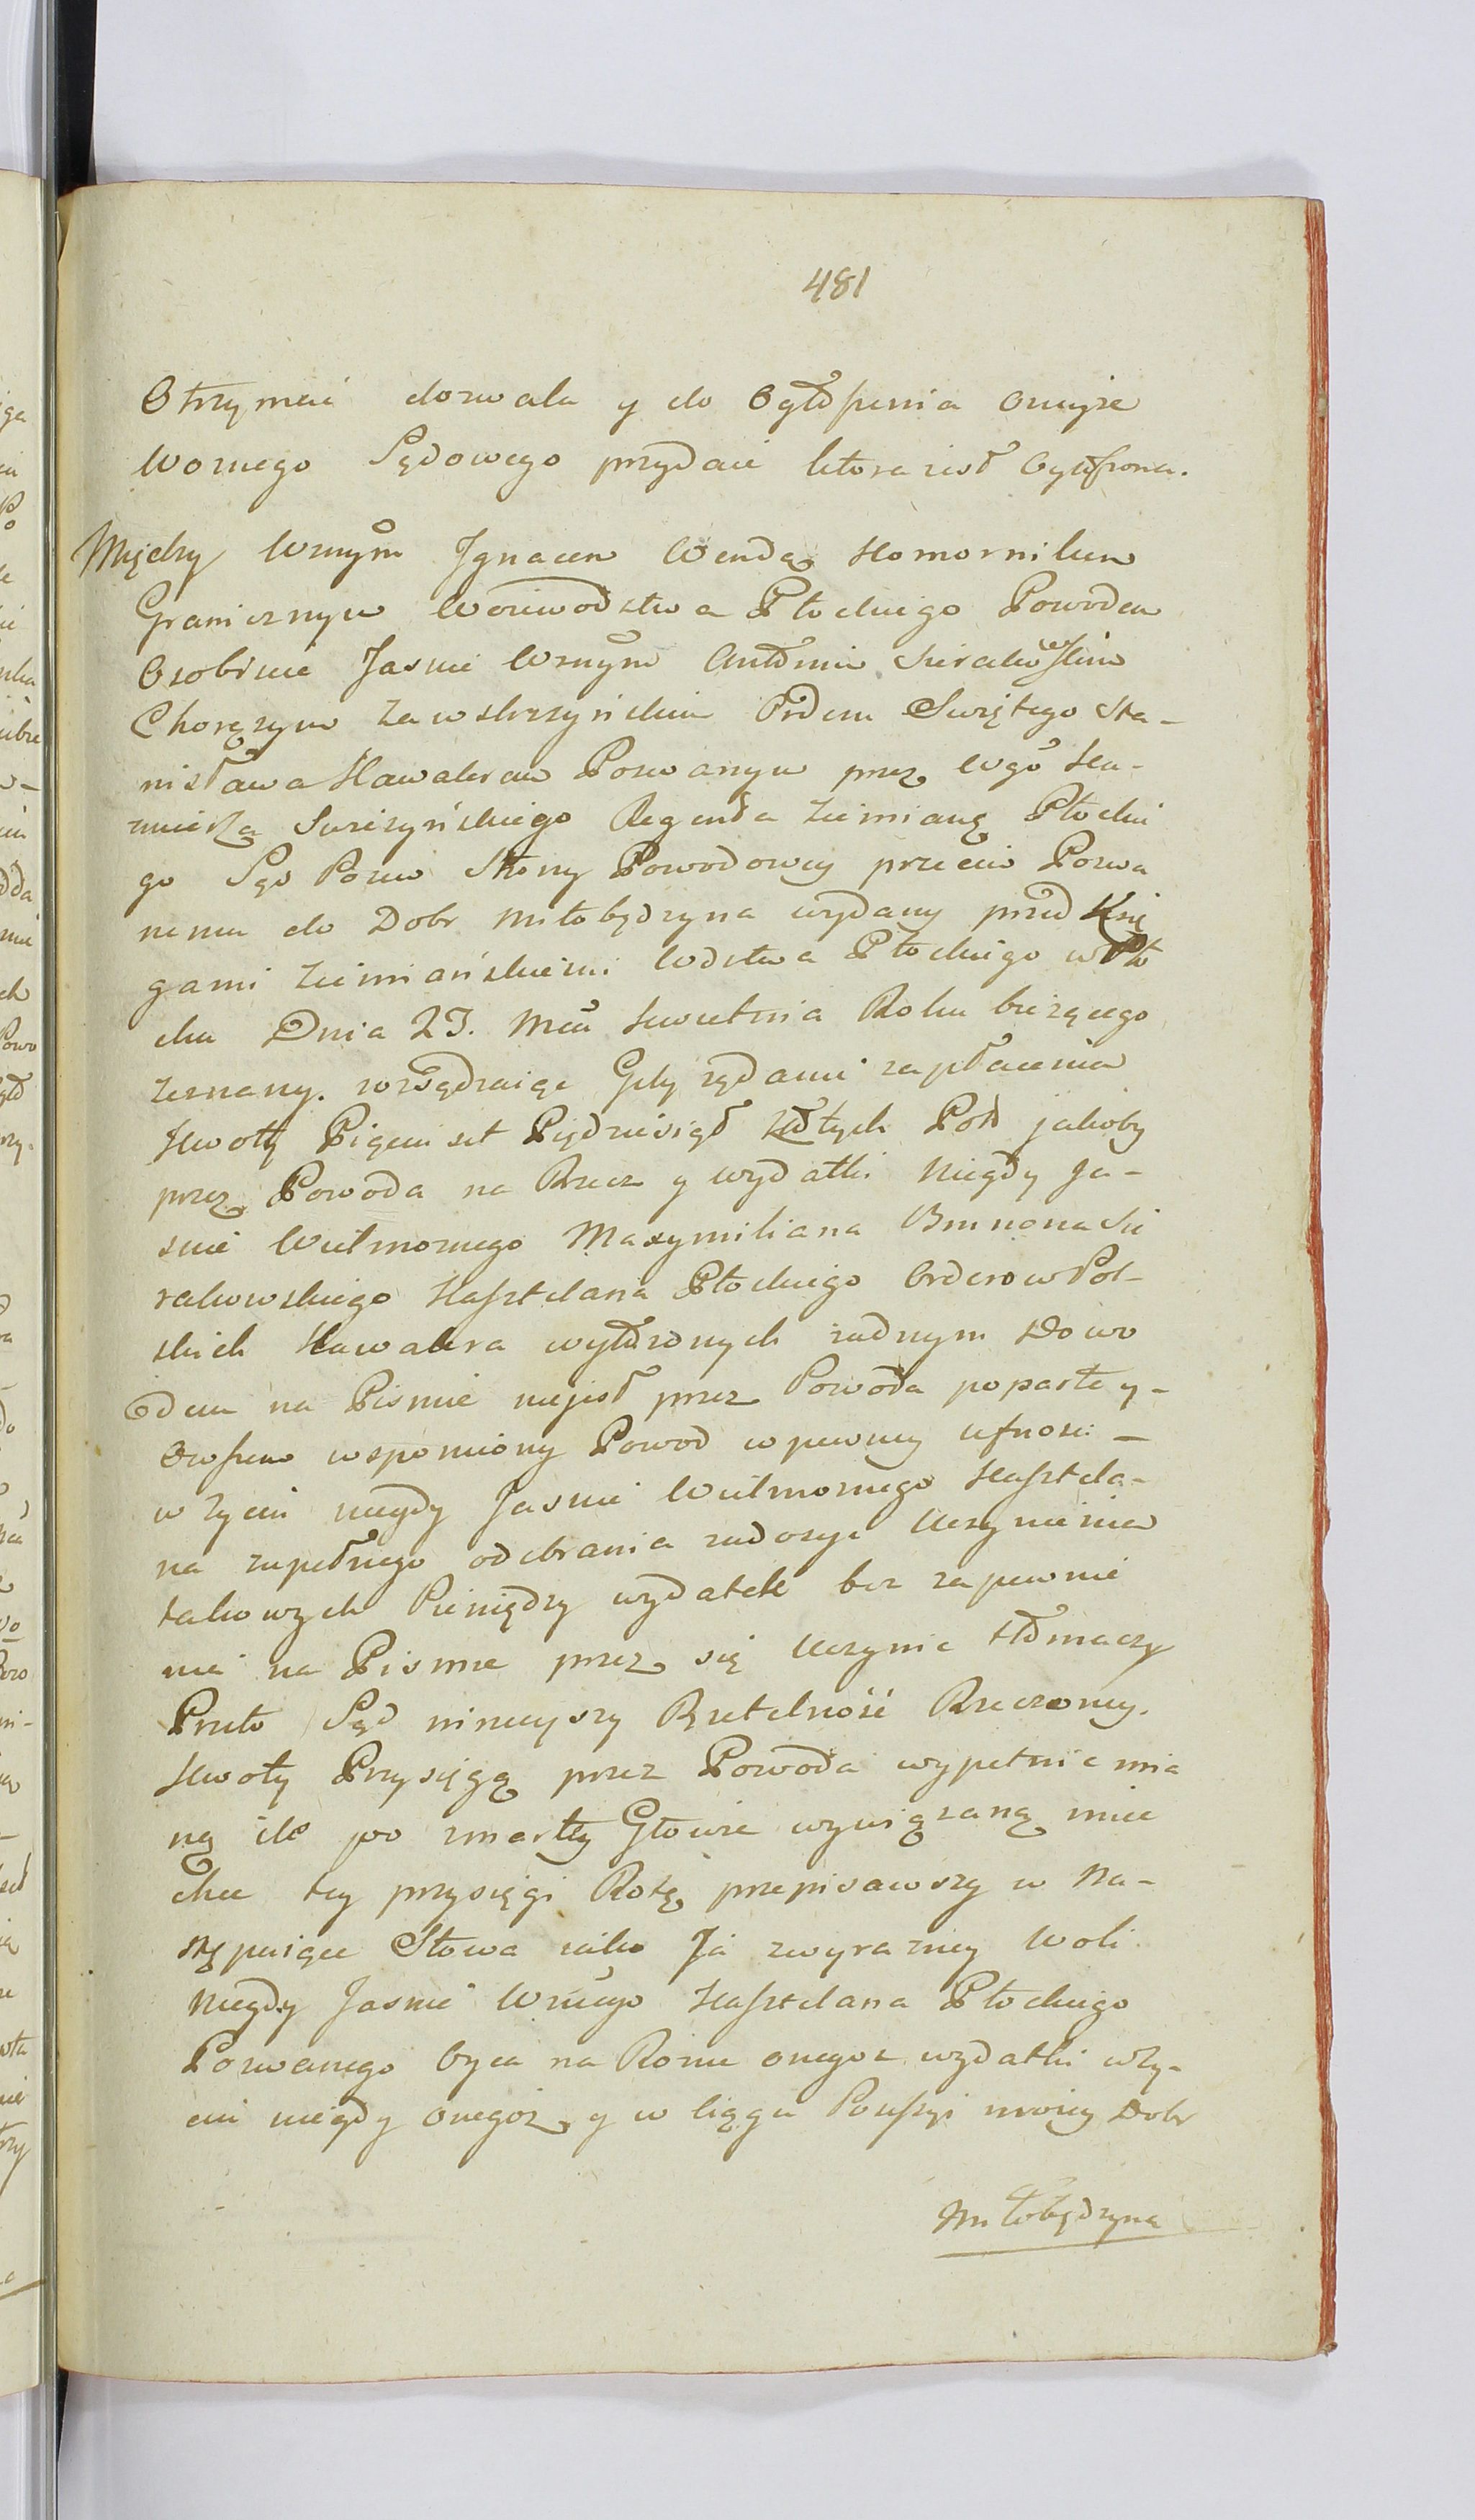 481
Otrzymać dozwala y do Ogłoszenia oneyże
Woznego Sądowego przydaie ktora iest Ogłoszona.
Między Wznym Ignacem Wendą Komornikem
Granicznym Woiewodztwa Płockiego Powodem
Osobiscie Jasnie Wznym Antonim Sierakowskim
Chorążym Zawskrzyńskim Orderu Swiętego Sta-
nisława Kawalerem Pozwanym przez Wgo Ka-
zmierza Swiezyńskiego Regenta Ziemiang Płockie
go Sąd Pozew Strony Powodowey przeciw Pozwa
nemu do Dobr Miłobędzyna wydany przed Xię
gami Ziemiańskiemi Wdztwa Płockiego w Pło
cku Dnia 23. Mca Kwietnia Roku bieżącego
zeznany. rozsądzaiąc Gdy żądanie zapłacenia
Kwoty Pięciuset Piędziesiąt Złłtych Pols jakoby
przez Powoda na Rzecz y wydatki Niegdy Ja-
snie Wielmoznego Maxymiliana Brunona Sie
rakowskiego Kasztelana Płockiego Orderow Pol-
skich Kawalera wyłożonych żadnym Dowo
dem na Pismie nie jest przez Powoda poparte y-
Owszem wspomiony Powod w pewney ufnosci -
w życiu niegdy Jasnie Wielmoznego Kasztela-
na zupełnego odebrania zadosyc Uczynienia
takowych Pieniędzy wydatek bez zapewnie
nia na Pismie przez się Uczynic tłomaczy
Przeto Sąd ninieyszy Rzetelność Rzeczoney.
Kwoty Przysięgą przez Powoda wypełnic mia
ną iako po zmarłey Głowie wywiązaną miec
chce tey przysięgi Rotę przepisawszy w Na-
stępuiące Słowa iako Ja zwyrazney Woli
Niegdy Jasnie Wznego Kasztelana Płockiego
Pozwanego Oyca na Rozne onegoz wydatki w ży-
ciu niegdy onegoż y w ciągu Possessyi moiey Dobr
Miłobędzyna